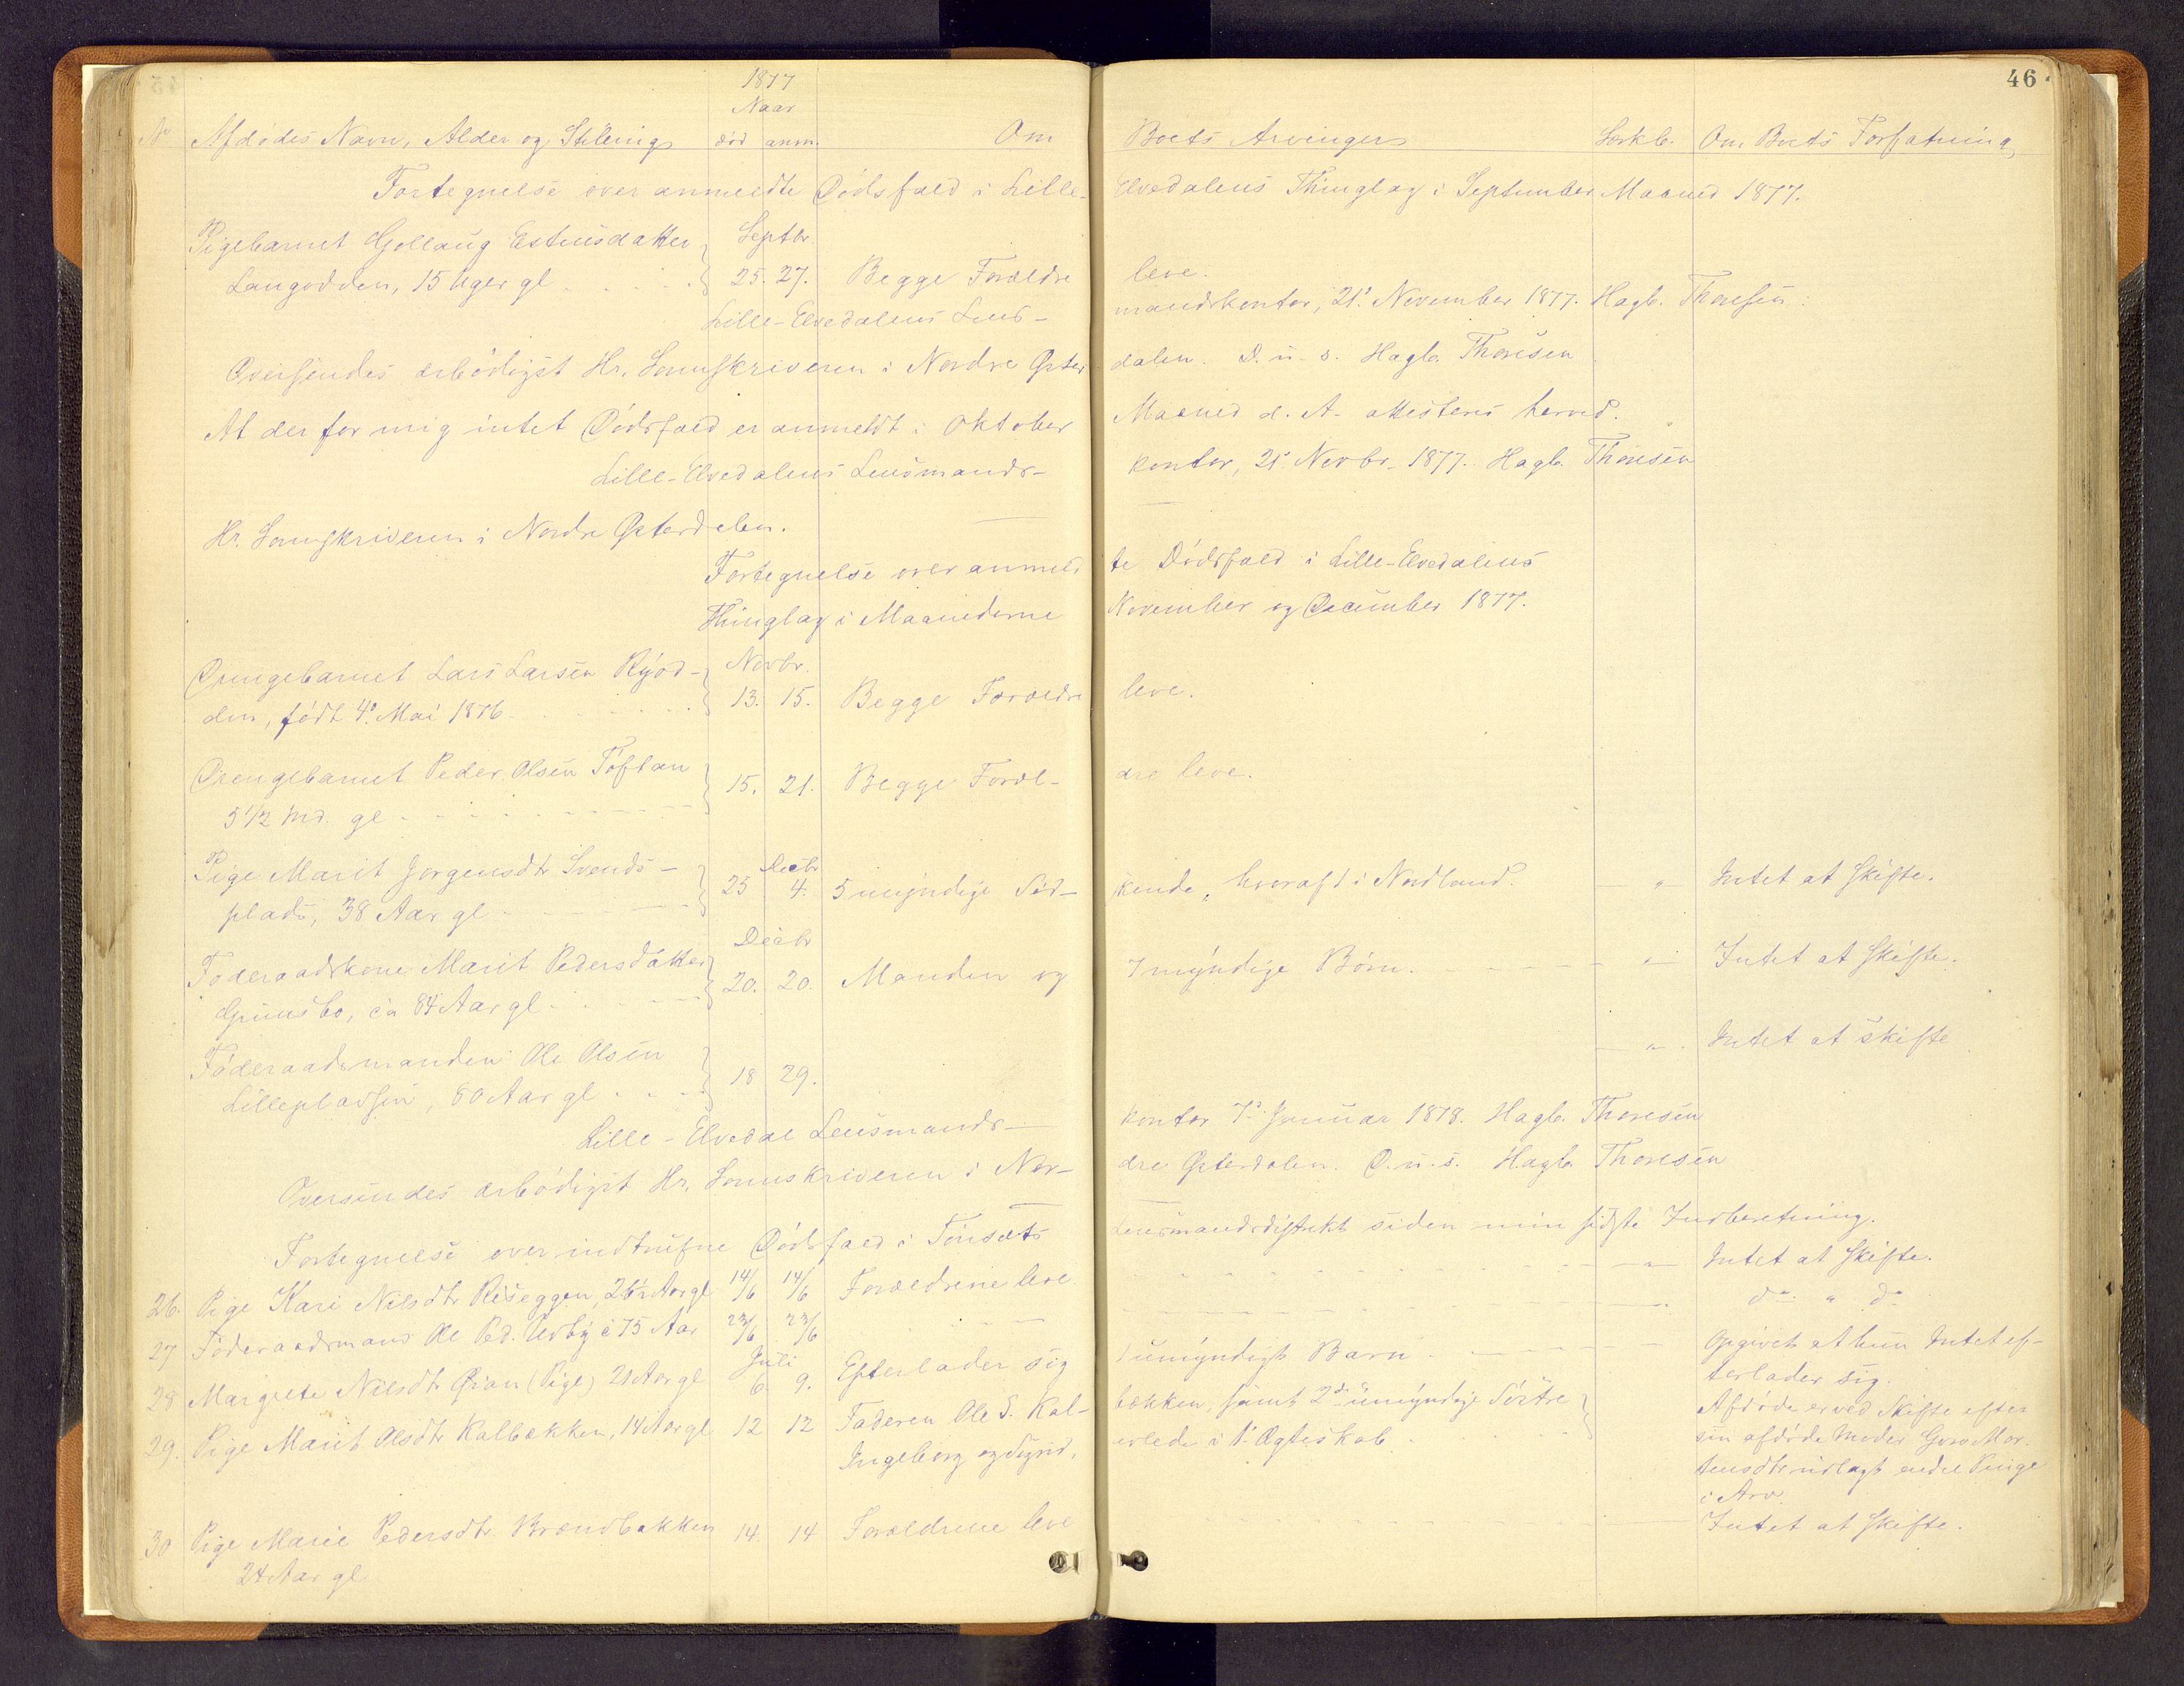 46.
1877
Naar
No Afdødes Navn, Alder og Stilling død anm. Om Boets Arvinger Særkb. Om Boets Forfatning,
Fortegnelse over anmeldte Dødsfald i Lille- Elvedalens Thinglag i September Maaned 1877.
Pigebarnet Gollaug Estensdatter Septbr.
Langodden, 15 Uger gl 25. 27. Begge Forældre leve.
Lille-Elvedalens Lens- mandskontor, 21d November 1877. Hagb. Thoresen.
Oversendes ærbødigst Hr. Sorenskriveren i Nordre Øster dalen. D. u. s. Hagb. Thoresen
At der for mig intet Dødsfald er anmeldt i Oktober Maaned d. A. attesteres herved.
Lille-Elvedalens Lensmands- kontor, 21d Novbr. 1877. Hagb. Thoresen
Hr. Sorenskriveren i Nordre Østerdalen.
Fortegnelse over anmeld te Dødsfald i Lille-Elvedalens
Thinglag i Maanederne November og December 1877.
Drengebarnet Lars Larsen Ryod- Novbr.
den, født 4d Mai 1876 13. 15. Begge Forældre leve.
Drengebarnet Peder Olsen Toftan
5 1/2 Md. gl 15. 21. Begge Foræl- dre leve.
Pige Marit Jørgensdtr Svends- Decbr
plads, 38 Aar gl 25 4. 5 myndige Sød- kende, hvoraf 1 i Nordland. " Intet at skifte.
Decbr
Føderaadskone Marit Pedersdatter
Grimsbo, ca 84 Aar gl 20. 20. Manden og 7 myndige Børn. " Intet at skifte.
Føderaadsmanden Ole Olsen
Lillepladsen, 80 Aar gl 18 29. " Intet at skifte
Lille-Elvedal Lensmands- kontor 7d Januar 1878. Hagb. Thoresen
Oversendes ærbødigst Hr. Sorenskriveren i Nor- dre Østerdalen. D. u. s. Hagb. Thoresen
Fortegnelse over indtrufne Dødsfald i Tønsæts Lensmandsdistrikt siden min sidste Indberetning.
26. Pige Kari Nilsdtr Riseggen, 26 1/2 Aar gl 14/6 14/6 Forældrene leve " Intet at skifte.
27 Føderaadsmand Ole Ped. Urby c 75 Aar 23/6 23/6 do " do
28 Margrete Nilsdtr Øian (Pige) 21 Aar gl Juli 6. 9. Efterlader sig 1 umyndigt Barn Opgivet at hun Intet ef-
terlader sig.
29. Pige Marit Olsdtr Kalbækken, 14 Aar gl 12 12 Faderen Ole S. Kal- bækken, samt 2de umyndige Søstre Afdøde er ved Skifte efter
Ingeborg og Sigrid, avlede i 1d Ægteskab sin afdøde Moder Goro Mor-
tensdtr udlagt endel Penge
i Arv.
30 Pige Marie Pedersdtr Brændbakken 14. 14 Forældrene leve Intet at skifte.
24 Aar gl